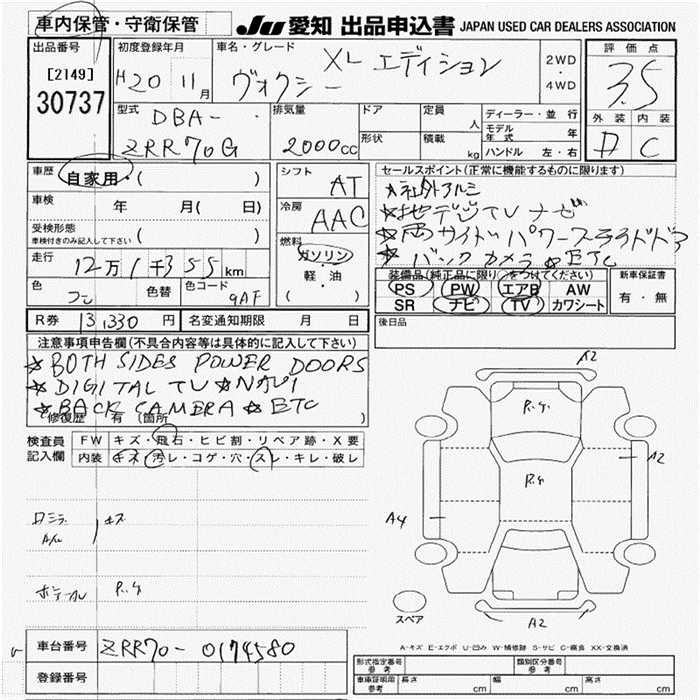 車内保管・守衛保管
JU 愛知 出品申込書 JAPAN USED CAR DEALERS ASSOCIATION
出品番号
[2149]
30737
初度登録年月
H20 11月
車名・グレード
ヴォクシー XL エディション
2WD
・
4WD
評価点
3.5
外装 内装
D C
型式
DBA-
ZRR70G
排気量
2000cc
ドア
形状
定員
人
積載
kg
ディーラー・並行
モデル年式 年
ハンドル 左・右
車歴 自家用・( )
車検 年 月(日)
受検形態
車検付きのみ記入して下さい ( )
走行 12万1千355km
色 色替 色コード 9AF
R券 13,330円 名変通知期限 月 日
シフト AT
冷房 AAC
燃料
ガソリン
・
軽・油
( )
セールスポイント(正常に機能するものに限ります)
☆社外アルミ
☆地デジTV ナビ
☆両サイドパワースライドドア
☆バックカメラ☆ETC
装備品(純正品に限り○をつけてください)
PS PW エアB AW
SR ナビ TV カワシート
新車保証書
有・無
後日品
注意事項申告欄(不具合内容等は具体的に記入して下さい)
☆BOTH SIDES POWER DOORS
☆DIGITAL TV☆NAVI
☆BACK CAMERA☆ETC
修復歴 有(箇所
検査員記入欄
FW キズ・飛石・ヒビ割・リペア跡・X要
内装 キズ・汚レ・コゲ・穴・スレ・キレ・破レ
キズ
P.タ
A2
P.タ
P.タ
A2
A4
A2
スペア
A-キズ E-エクボ U-凹み W-補修跡 S-サビ C-腐食 XX-交換済
車台番号 ZRR70-0174580
登録番号
型式指定番号 参考
類別区分番号 参考
車庫証明用 参考 長さ cm 幅 cm 高さ cm